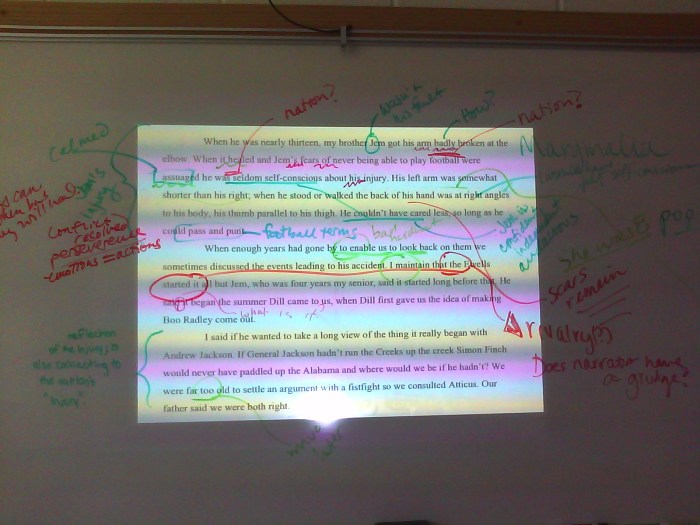 nation?
wasn't
his fault
How?
nation?
calmed
Marginalia
When he was nearly thirteen, my brother Jem got his arm badly broken at the
elbow. When it healed and Jem's fears of never being able to play football were
assuaged he was seldom self-conscious about his injury. His left arm was somewhat
shorter than his right; when he stood or walked the back of his hand was at right angles
to his body, his thumb parallel to his thigh. He couldn't have cared less, so long as he
could pass and punt.
football terms
conflict
resolved
perseverence
emotions = actions
When enough years had gone by to enable us to look back on them we
sometimes discussed the events leading to his accident. I maintain that the Ewells
started it all but Jem, who was four years my senior, said it started long before that. He
said it began the summer Dill came to us, when Dill first gave us the idea of making
Boo Radley come out.
what is it?
scars
remain
rivalry(?)
Does narrator have
a grudge?
I said if he wanted to take a long view of the thing it really began with
Andrew Jackson. If General Jackson hadn't run the Creeks up the creek Simon Finch
would never have paddled up the Alabama and where would we be if he hadn't? We
were far too old to settle an argument with a fistfight so we consulted Atticus. Our
father said we were both right.
reflection
of the injury; is
also connecting to
"injury"